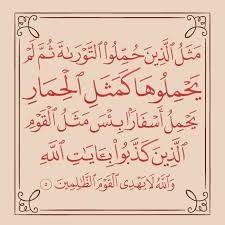 مَثَلُ ٱلَّذِينَ حُمِّلُوا۟ ٱلتَّوْرَىٰةَ ثُمَّ لَمْ
يَحْمِلُوهَا كَمَثَلِ ٱلْحِمَارِ
يَحْمِلُ أَسْفَارًۢا بِئْسَ مَثَلُ ٱلْقَوْمِ
ٱلَّذِينَ كَذَّبُوا۟ بِـَٔايَـٰتِ ٱللَّهِ
وَٱللَّهُ لَا يَهْدِى ٱلْقَوْمَ ٱلظَّـٰلِمِينَ ٥